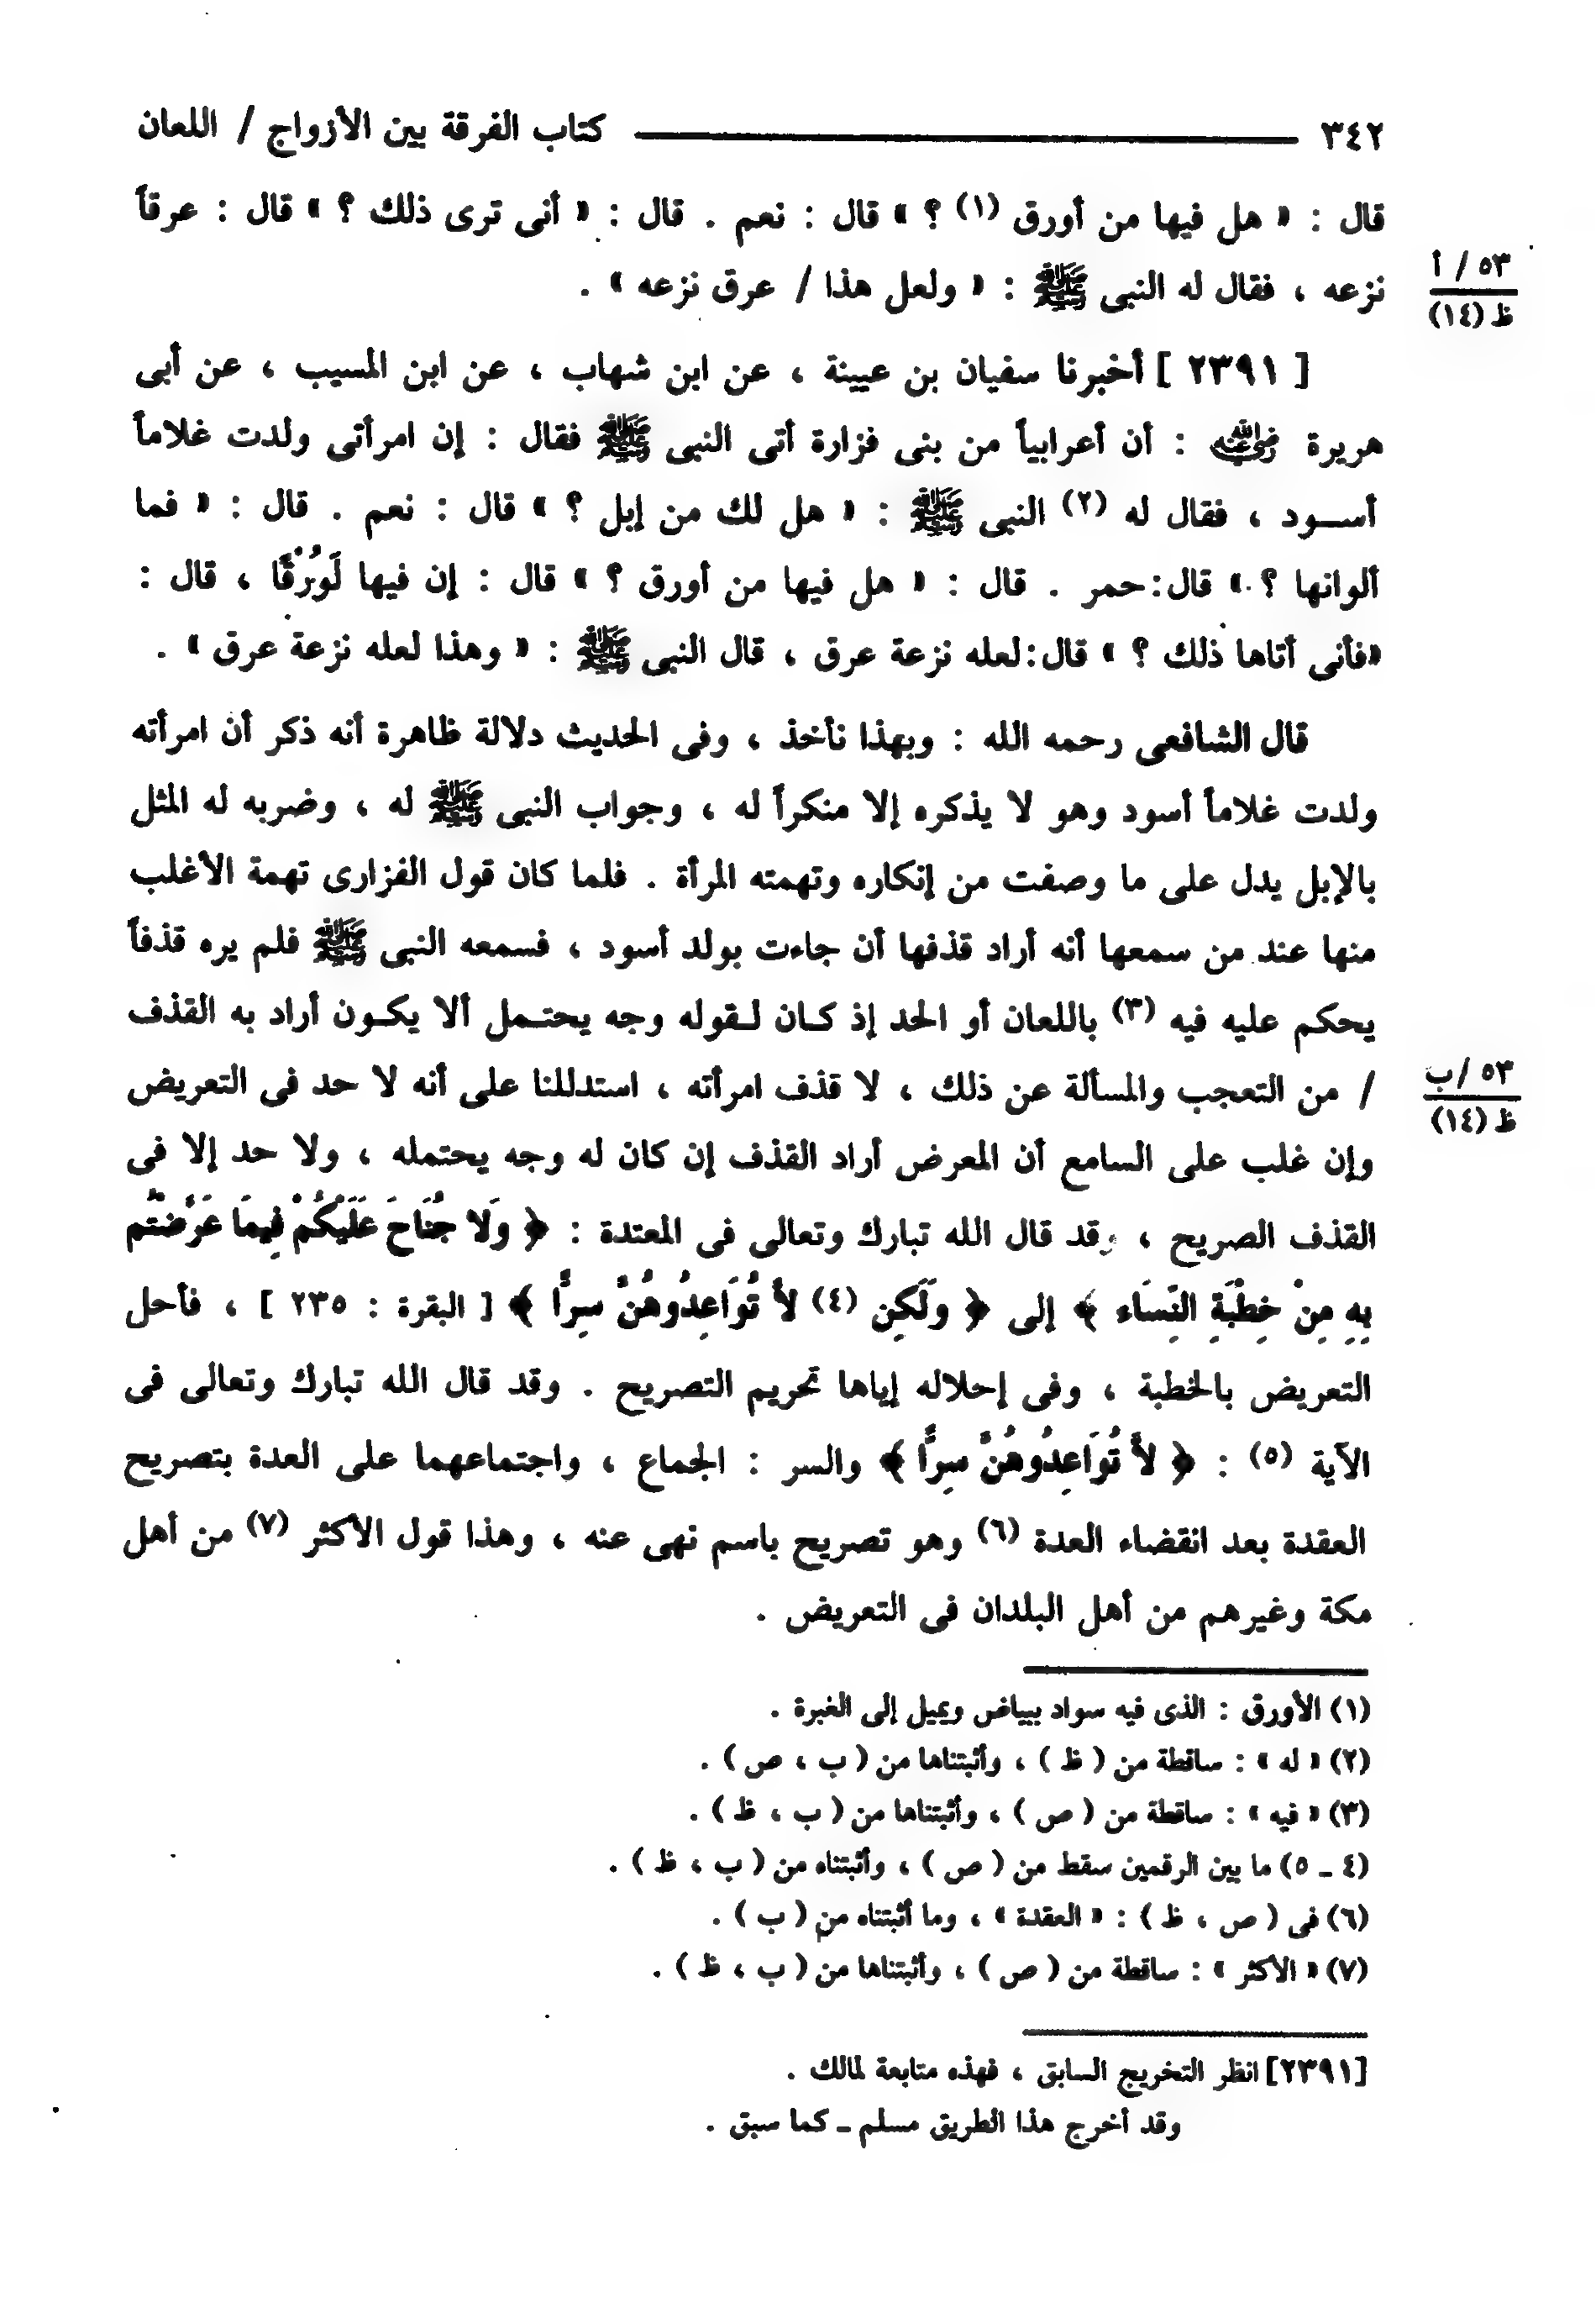 ٣٤٢ كتاب الفرقة بين الأزواج / اللعان
قال : « هل فيها من أورق (١) ؟ » قال : نعم . قال : « أنى ترى ذلك ؟ » قال : عرقاً
نزعه ، فقال له النبى ﷺ : « ولعل هذا / عرق نزعه » .
٥٣ / أ
ظ (١٤)
[ ٢٣٩١ ] أخبرنا سفيان بن عيينة ، عن ابن شهاب ، عن ابن المسيب ، عن أبى
هريرة رضي الله عنه : أن أعرابياً من بنى فزارة أتى النبى ﷺ فقال : إن امرأتى ولدت غلاماً
أسود ، فقال له (٢) النبى ﷺ : « هل لك من إبل ؟ » قال : نعم . قال : « فما
ألوانها ؟ » قال : حمر . قال : « هل فيها من أورق ؟ » قال : إن فيها لَوُرْقًا ، قال :
«فأنى أتاها ذلك ؟ » قال : لعله نزعة عرق ، قال النبى ﷺ : « وهذا لعله نزعة عرق » .
قال الشافعى رحمه الله : وبهذا نأخذ ، وفى الحديث دلالة ظاهرة أنه ذكر أن امرأته
ولدت غلاماً أسود وهو لا يذكره إلا منكراً له ، وجواب النبى ﷺ له ، وضربه له المثل
بالإبل يدل على ما وصفت من إنكاره وتهمته المرأة . فلما كان قول الفزارى تهمة الأغلب
منها عند من سمعها أنه أراد قذفها أن جاءت بولد أسود ، فسمعه النبى ﷺ فلم يره قذفاً
يحكم عليه فيه (٣) باللعان أو الحد إذ كان لقوله وجه يحتمل ألا يكون أراد به القذف
/ من التعجب والمسألة عن ذلك ، لا قذف امرأته ، استدللنا على أنه لا حد فى التعريض
٥٣ /ب
ظ (١٤)
وإن غلب على السامع أن المعرض أراد القذف إن كان له وجه يحتمله ، ولا حد إلا فى
القذف الصريح ، وقد قال الله تبارك وتعالى فى المعتدة : ﴿ وَلَا جُنَاحَ عَلَيْكُمْ فِيمَا عَرَّضْتُم
بِهِ مِنْ خِطْبَةِ النِّسَاء ﴾ إلى ﴿ وَلَكِن (٤) لاَّ تُوَاعِدُوهُنَّ سِرًّا ﴾ [ البقرة : ٢٣٥ ] ، فأحل
التعريض بالخطبة ، وفى إحلاله إياها تحريم التصريح . وقد قال الله تبارك وتعالى فى
الآية (٥) : ﴿ لاَّ تُوَاعِدُوهُنَّ سِرًّا ﴾ والسر : الجماع ، واجتماعهما على العدة بتصريح
العقدة بعد انقضاء العدة (٦) وهو تصريح باسم نهى عنه ، وهذا قول الأكثر (٧) من أهل
مكة وغيرهم من أهل البلدان فى التعريض .
(١) الأورق : الذى فيه سواد ببياض ويميل إلى الغبرة .
(٢) « له » : ساقطة من ( ظ ) ، وأثبتناها من ( ب ، ص ) .
(٣) « فيه » : ساقطة من ( ص ) ، وأثبتناها من ( ب ، ظ ) .
(٤ ـ ٥) ما بين الرقمين سقط من ( ص ) ، وأثبتناه من ( ب ، ظ ) .
(٦) فى ( ص ، ظ ) : « العقدة » ، وما أثبتناه من ( ب ) .
(٧) « الأكثر » : ساقطة من ( ص ) ، وأثبتناها من ( ب ، ظ ) .
[٢٣٩١] انظر التخريج السابق ، فهذه متابعة لمالك .
وقد أخرج هذا الطريق مسلم ـ كما سبق .